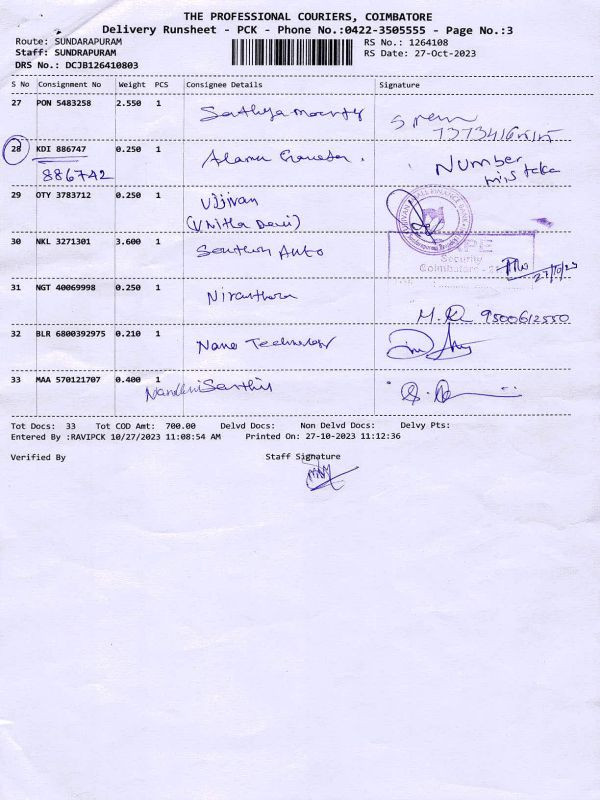 THE PROFESSIONAL COURIERS, COIMBATORE
Delivery Runsheet - PCK - Phone No.:0422-3505555 - Page No.:3
Route: SUNDARAPURAM RS No.: 1264108
Staff: SUNDRAPURAM RS Date: 27-Oct-2023
DRS No.: DCJB126410803
S No Consignment No Weight PCS Consignee Details Signature
27 PON 5483258 2.550 1 Sathyamoorthy
28 KDI 886747 0.250 1 Number
886742 mistake
29 OTY 3783712 0.250 1 Ujjivan
30 NKL 3271301 3.600 1 Southern Auto
Security
Coimbatore
27/10/23
31 NGT 40069998 0.250 1 Niranthara
M. 9500612550
32 BLR 6800392975 0.210 1 Nano Technology
33 MAA 570121707 0.400 1 Nandhini
Tot Docs: 33 Tot COD Amt: 700.00 Delvd Docs: Non Delvd Docs: Delvy Pts:
Entered By :RAVIPCK 10/27/2023 11:08:54 AM Printed On: 27-10-2023 11:12:36
Verified By Staff Signature